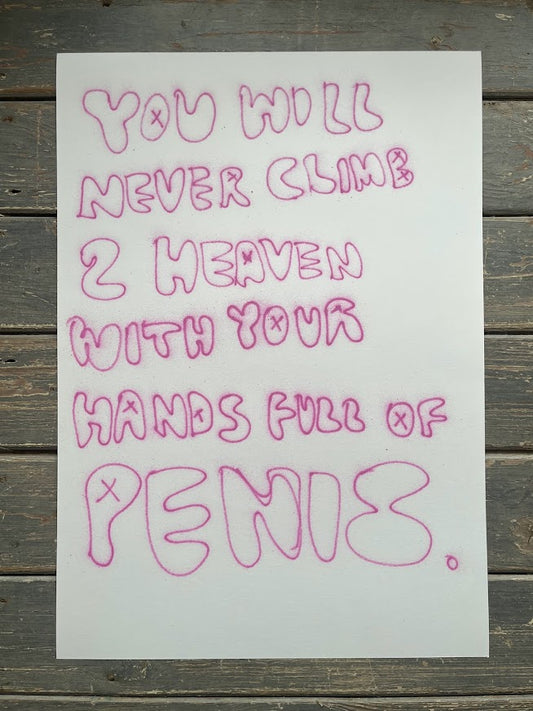 YOU WILL
NEVER CLIMB
2 HEAVEN
WITH YOUR
HANDS FULL OF
PENIS.